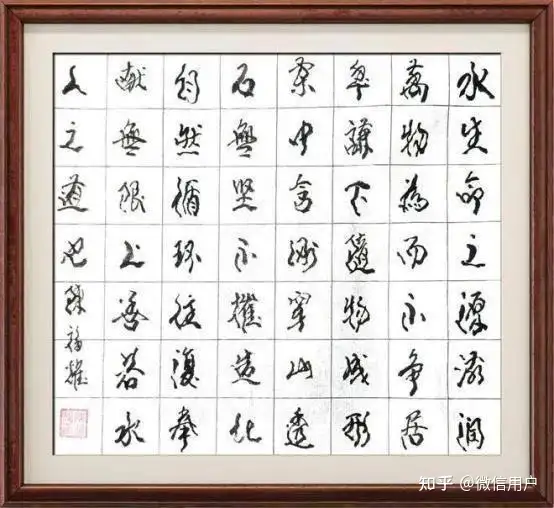 水生命之源滋润
萬物為而不争居
卑謙下隨物成形
柔中含剛穿山透
石無坚不摧造化
自然循环往復奉
献無限上善若水
人之道也
知乎 @微信用户